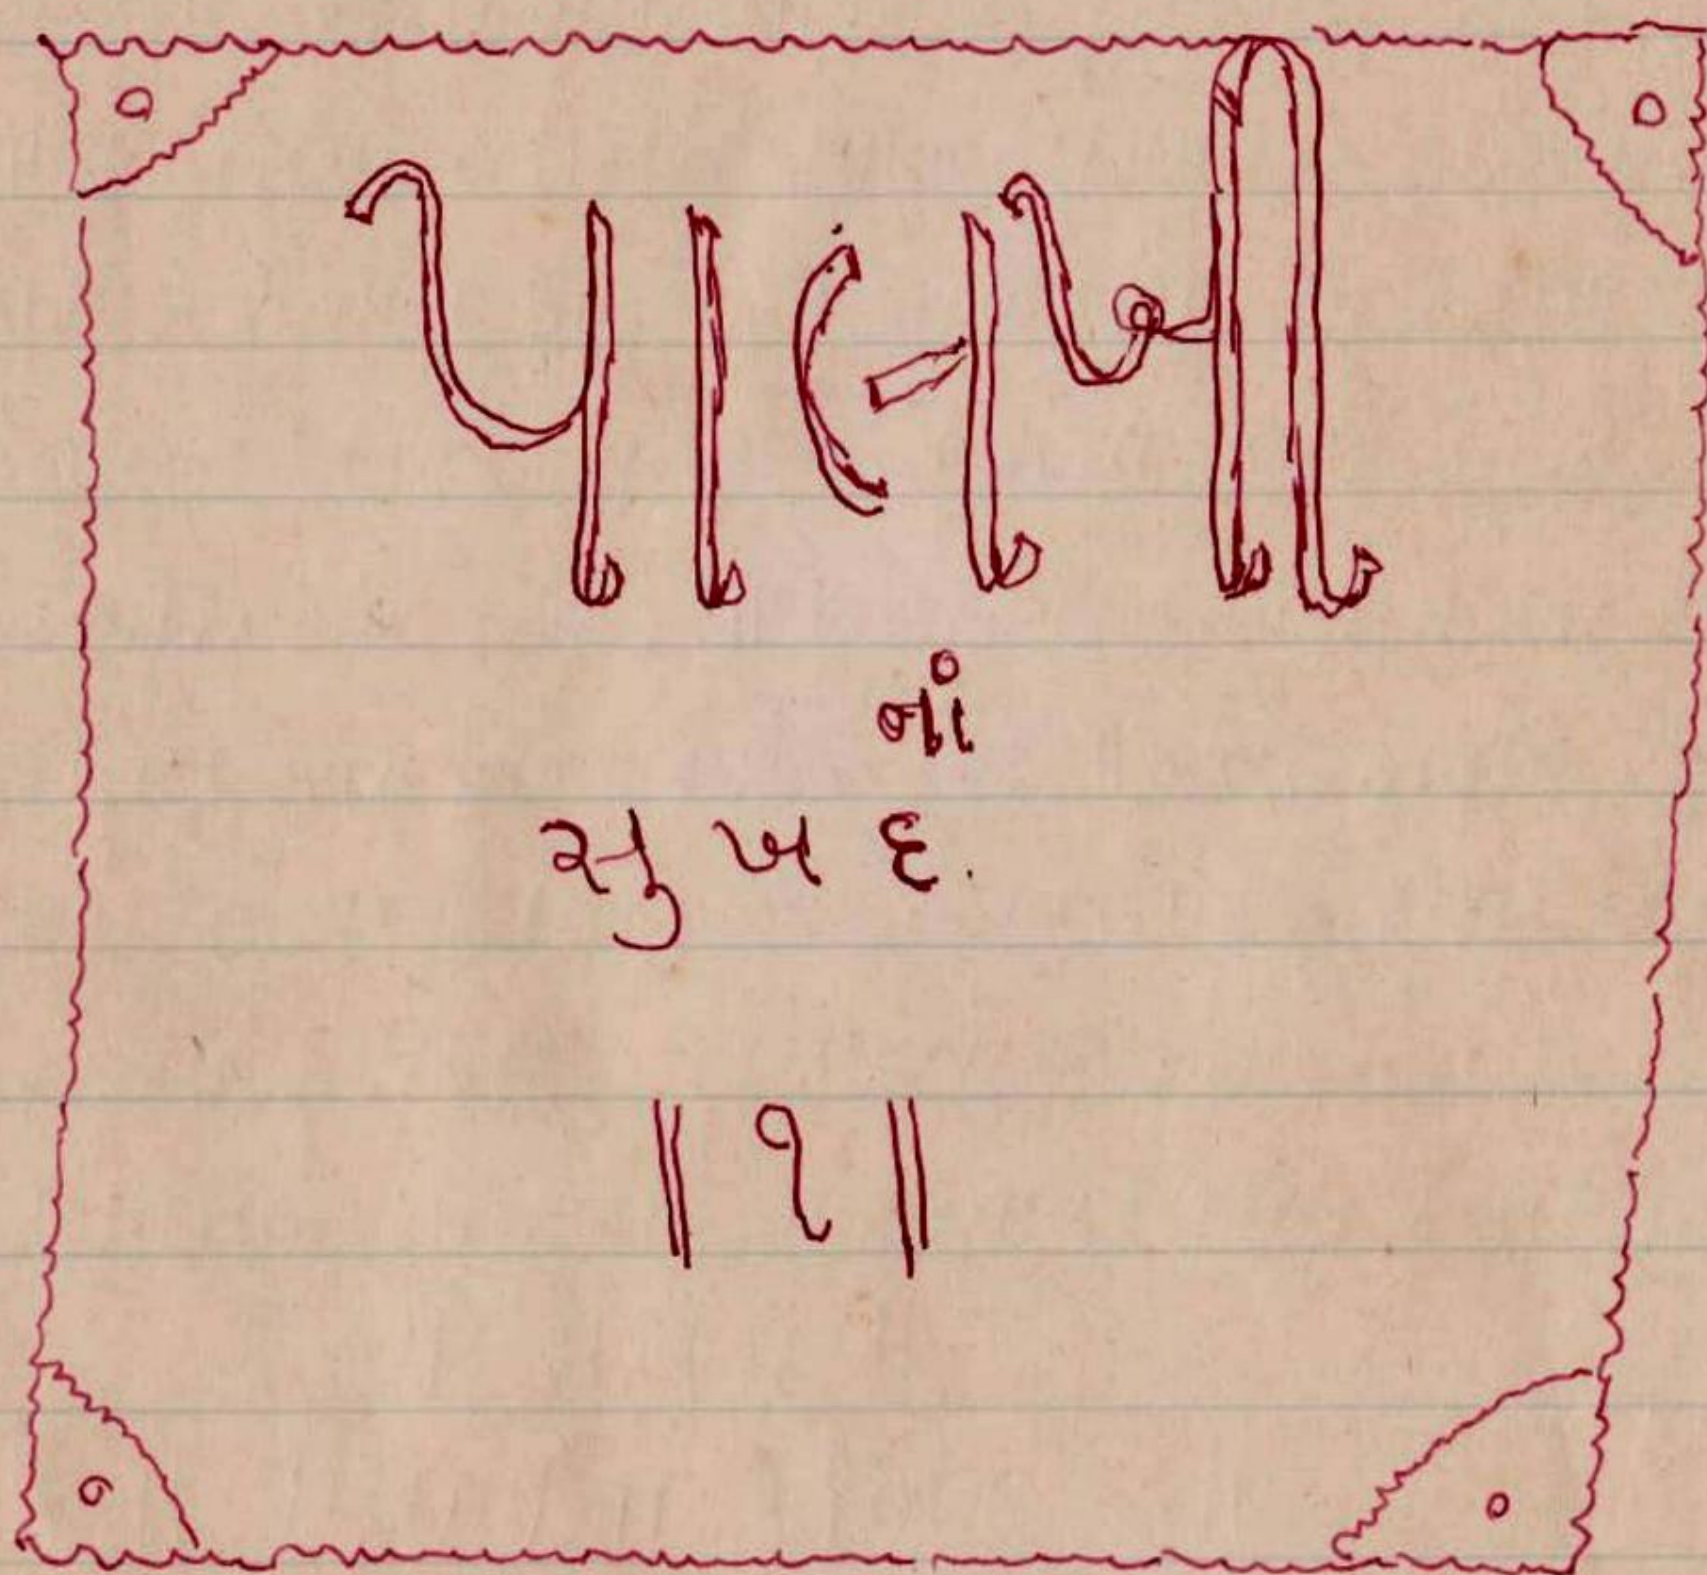 પાલખી
નાં
સુખદ.
॥ ૧ ॥